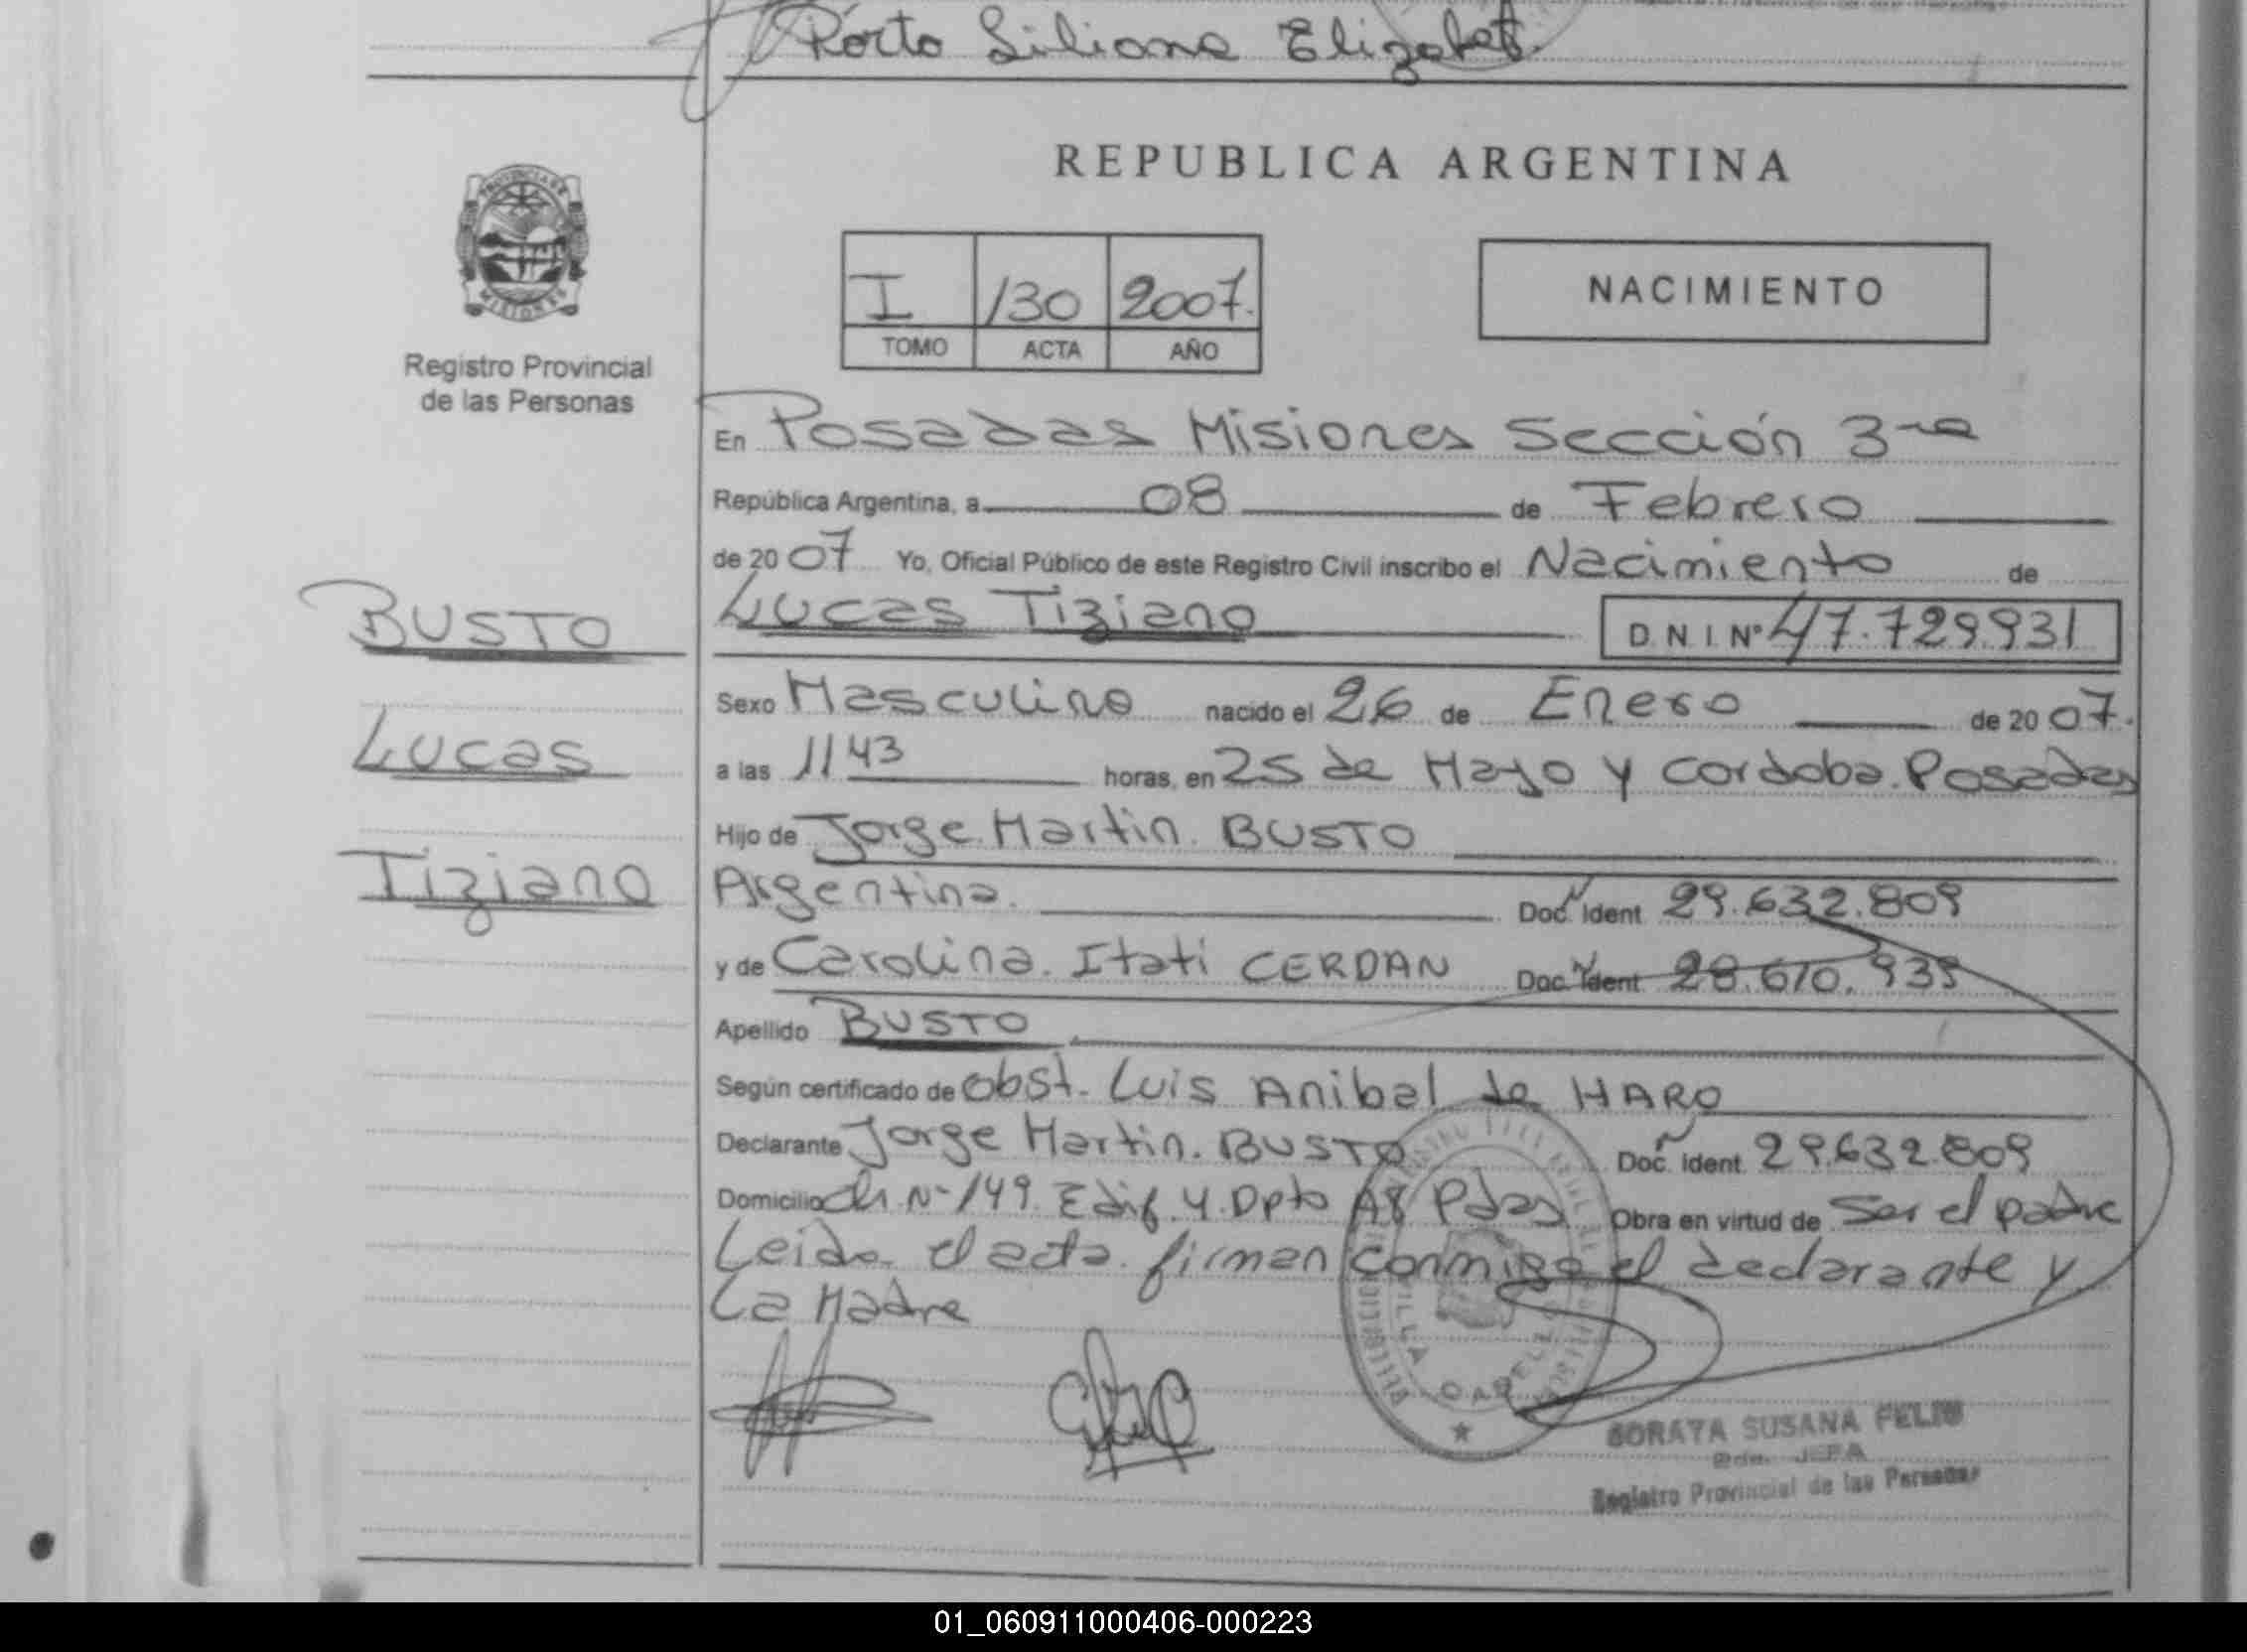 Porto Liliana Elizabet.
REPUBLICA ARGENTINA
PROVINCIA DE
MISIONES
Registro Provincial
de las Personas
I 130 2007.
TOMO ACTA AÑO
NACIMIENTO
En Posadas Misiones Sección 3ra
República Argentina, a 08 de Febrero
de 2007 Yo, Oficial Público de este Registro Civil inscribo el Nacimiento de
BUSTO
Lucas
Tiziano
Lucas Tiziano D.N.I. Nº 47.729.931
Sexo Masculino nacido el 26 de Enero de 2007.
a las 11 43 horas, en 25 de Mayo y Cordoba. Posadas
Hijo de Jorge Martin. BUSTO
Argentina. Doc. Ident 29.632.809
y de Carolina. Itati CERDAN Doc. Ident 28.610.935
Apellido BUSTO
Según certificado de Obst. Luis Anibal de HARO
Declarante Jorge Martin. BUSTO Doc. Ident. 29.632.809
Domicilio Ch. Nº 149. Edif. 4. Dpto A8 Pdas Obra en virtud de Ser el padre
Leida el acta. firman conmigo el declarante y
La Madre
SORAYA SUSANA FELIU
JEFA
Registro Provincial de las Personas
01_060911000406-000223